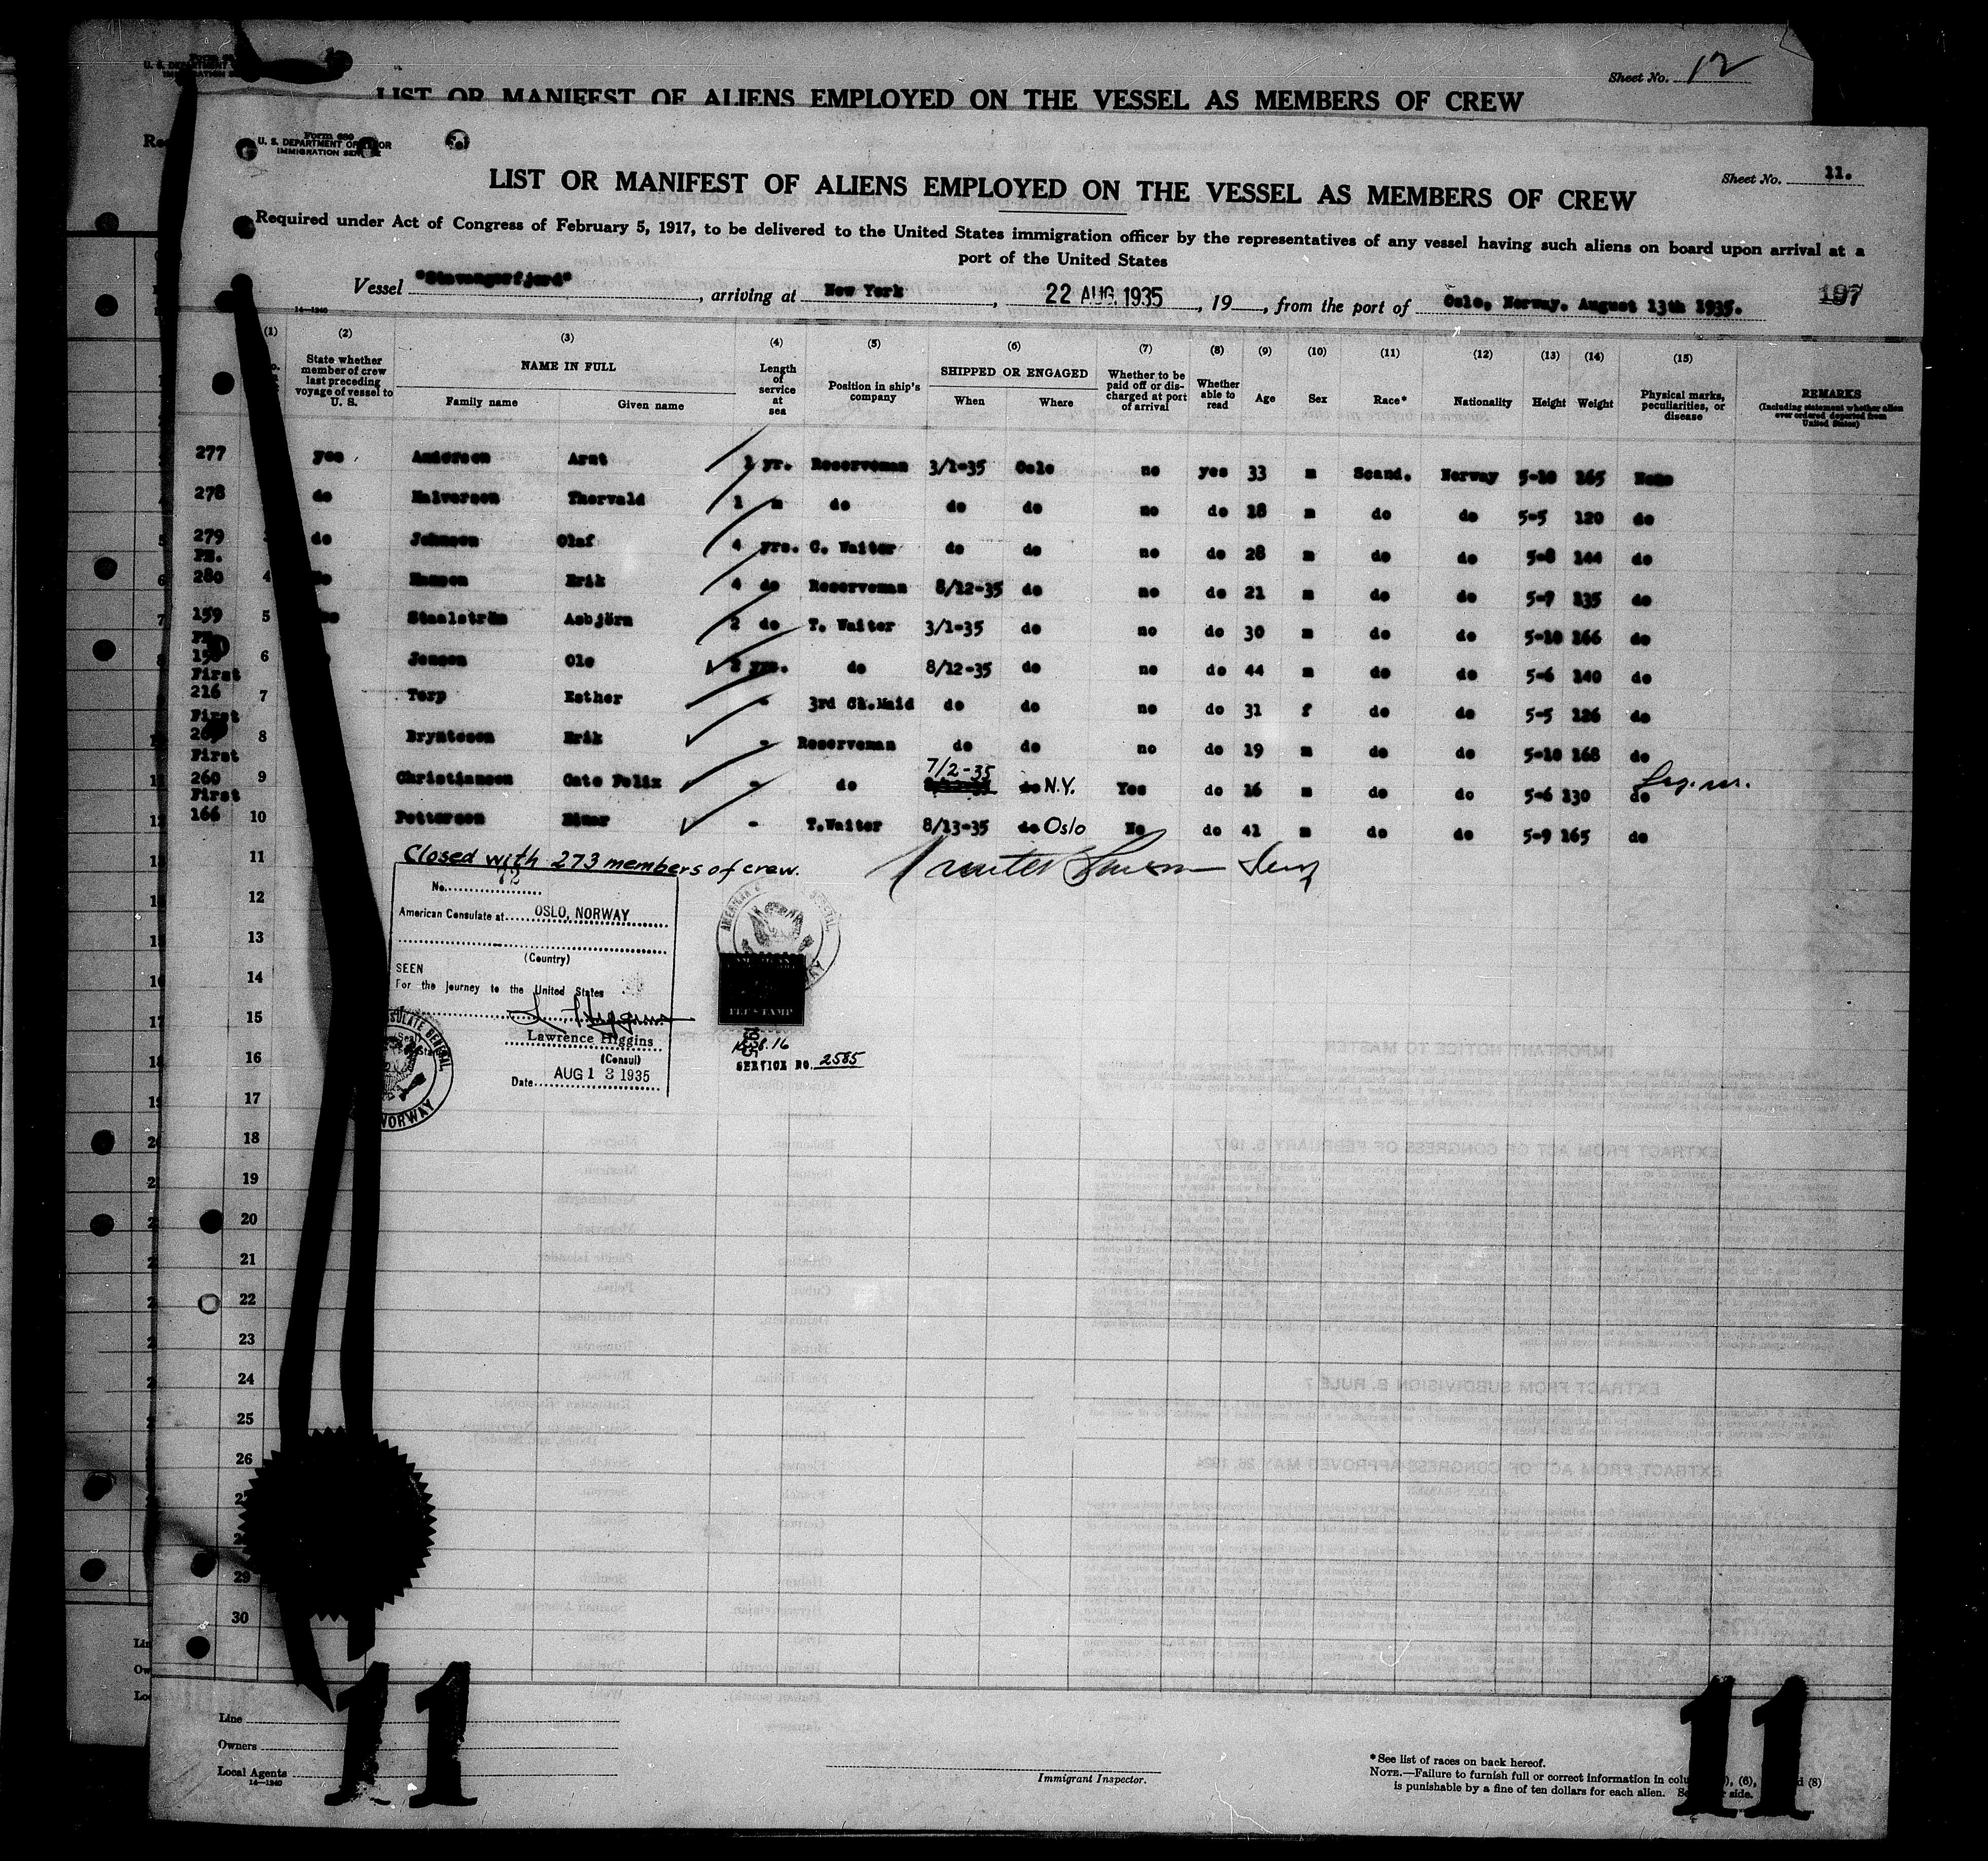 Sheet No. 12
LIST OR MANIFEST OF ALIENS EMPLOYED ON THE VESSEL AS MEMBERS OF CREW
Form 680
U. S. DEPARTMENT OF LABOR
IMMIGRATION SERVICE
Sheet No. 11.
LIST OR MANIFEST OF ALIENS EMPLOYED ON THE VESSEL AS MEMBERS OF CREW
Required under Act of Congress of February 5, 1917, to be delivered to the United States immigration officer by the representatives of any vessel having such aliens on board upon arrival at a
port of the United States
Vessel "Stavangerfjord", arriving at New York, 22 AUG 1935, 19__, from the port of Oslo, Norway. August 13th 1935. 197
14—1240
(1) (2) (3) (4) (5) (6) (7) (8) (9) (10) (11) (12) (13) (14) (15)
State whether member of crew last preceding voyage of vessel to U. S. NAME IN FULL Family name Given name Length of service at sea Position in ship's company SHIPPED OR ENGAGED When Where Whether to be paid off or discharged at port of arrival Whether able to read Age Sex Race* Nationality Height Weight Physical marks, peculiarities, or disease REMARKS (Including statement whether alien ever ordered deported from United States)
277 yes Andersen Arnt 1 yr. Reserveman 3/1-35 Oslo no yes 33 m Scand. Norway 5-10 165 None
278 do Halvorsen Thorvald 1 " do do do no do 18 m do do 5-5 120 do
279 do Johnsen Olaf 4 yrs. C. Waiter do do no do 28 m do do 5-8 144 do
FN.
280 4 do Hansen Erik 4 do Reserveman 8/12-35 do no do 21 m do do 5-7 135 do
159 5 Staalström Asbjörn 2 do T. Waiter 3/1-35 do no do 30 m do do 5-10 166 do
6 Jensen Ole 2 yrs. do 8/12-35 do no do 44 m do do 5-6 140 do
First
216 7 Torp Esther - 3rd Ch.Maid do do no do 31 f do do 5-5 126 do
First
8 Bryntesen Erik - Reserveman do do no do 19 m do do 5-10 168 do
First
260 9 Christiansen Cato Felix - do 7/2-35 do N.Y. Yes do 16 m do do 5-6 130 do
First
166 10 Pettersen Einar - T.Waiter 8/13-35 do Oslo No do 41 m do do 5-9 165 do
Closed with 273 members of crew.
11
No. 72
12
American Consulate at OSLO, NORWAY
13
(Country)
14
SEEN
For the journey to the United States
15
L. Higgins
Lawrence Higgins
16
(Consul)
Date AUG 13 1935
FEE STAMP
SERVICE NO. 2585
17
18
19
20
21
22
23
24
25
26
29
30
11
11
Line
Owners
Local Agents
14—1240
Immigrant Inspector.
*See list of races on back hereof.
NOTE.—Failure to furnish full or correct information in (6), (8)
is punishable by a fine of ten dollars for each alien. side.